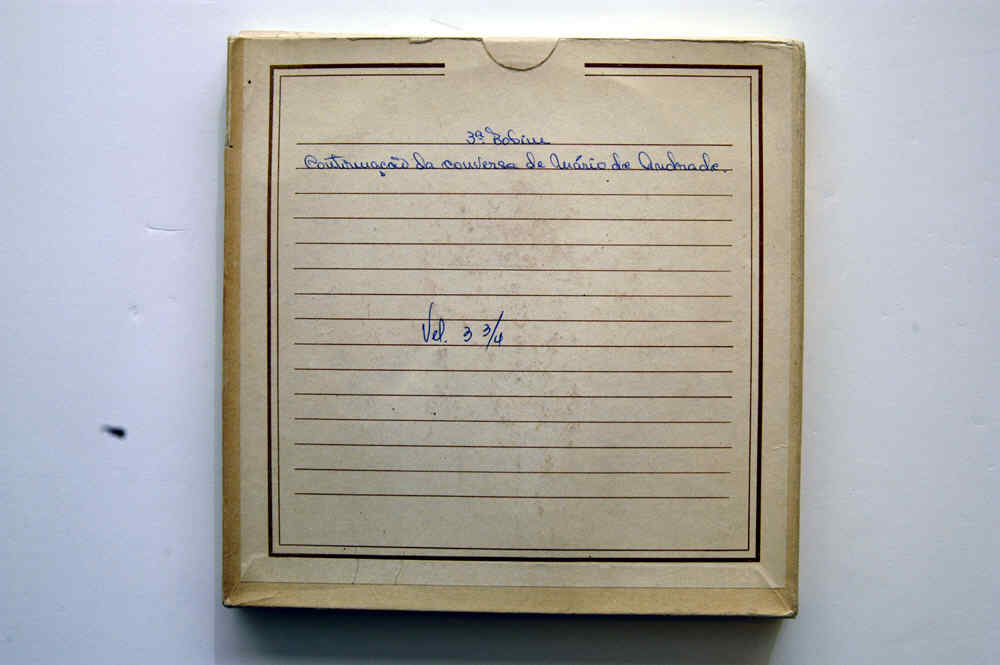 3ª Bobine
Continuação da conversa de Mário de Andrade.
Vel. 3 3/4